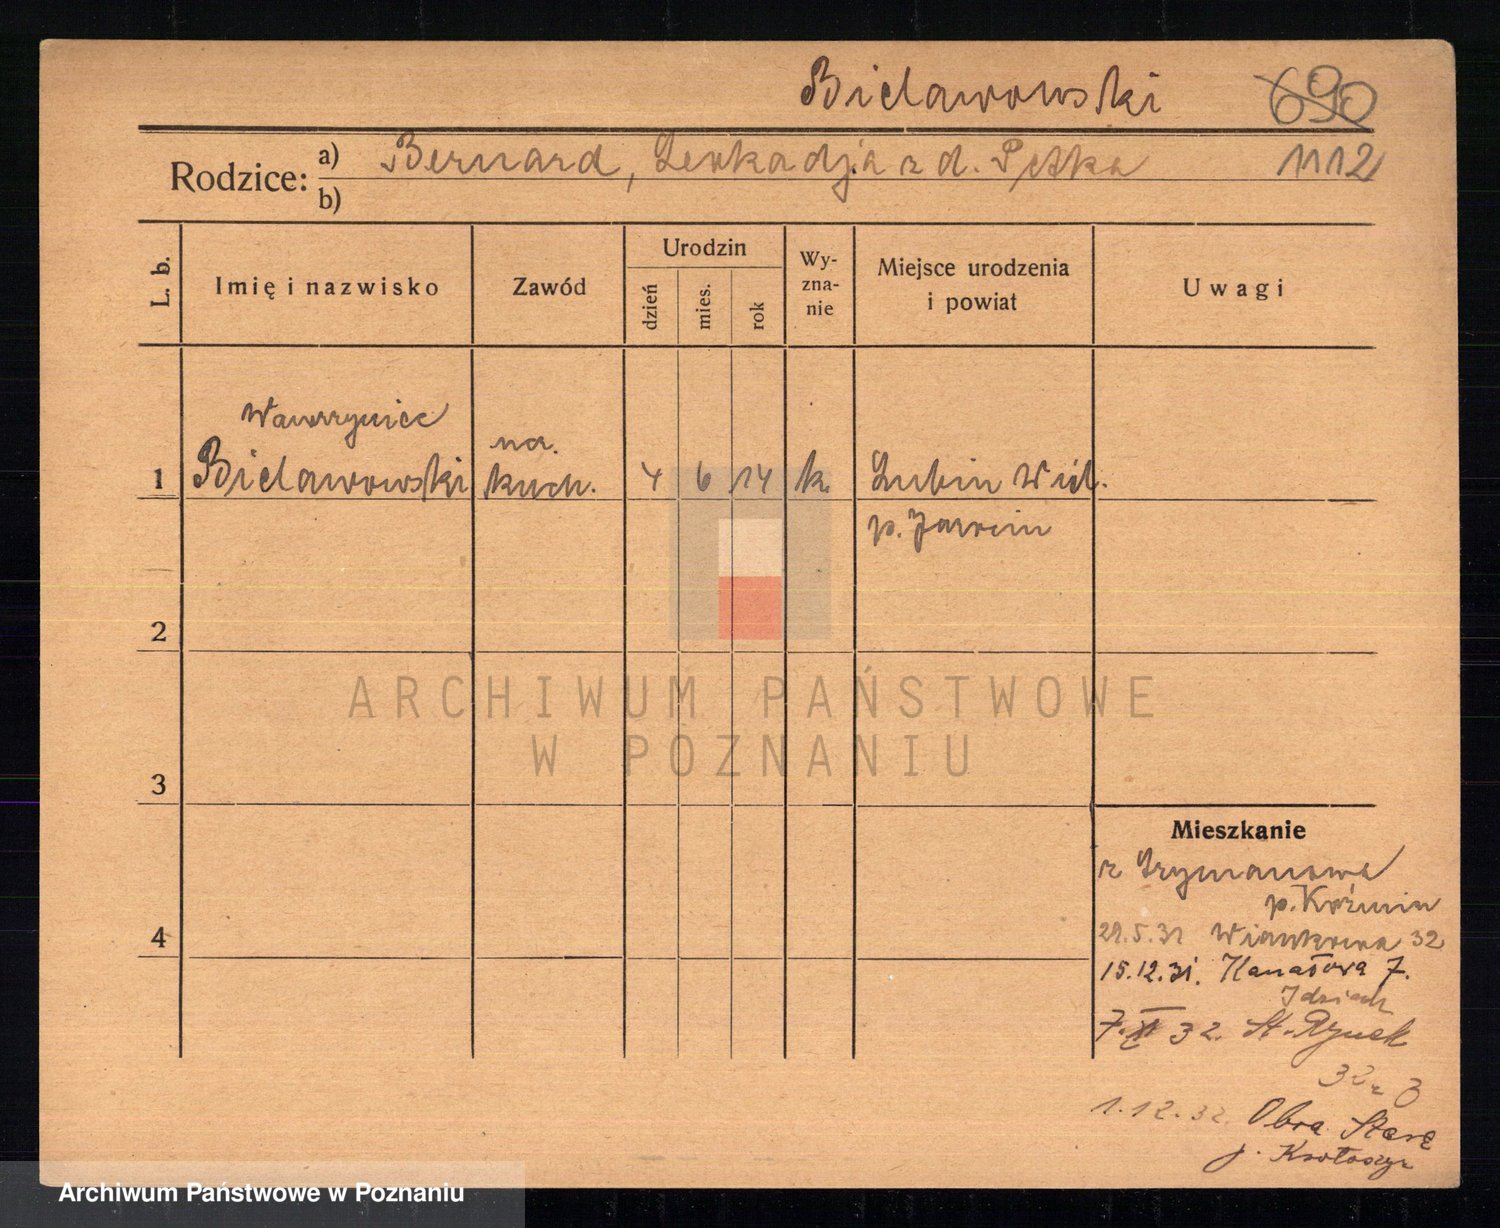 Bielawowski 690
Rodzice: a) Bernard, Leokadja z d. Pętka 1112
b)
L. b. Imię i nazwisko Zawód Urodzin dzień mies. rok Wy-zna-nie Miejsce urodzenia i powiat Uwagi
Wawrzyniec na.
1 Bielawowski kuch. 4 6 14 k. Lubin Wiel.
p. Jarocin
2
ARCHIWUM PAŃSTWOWE
W POZNANIU
3
Mieszkanie
z Szymanowa
p. Koźmin
4
29.5.31 32
15.12.31. Kanałowa 7.
Idziak
7. 32. St. Rynek
32 z 3
1.12.32. Obra Stara
p. Krotoszyn
Archiwum Państwowe w Poznaniu